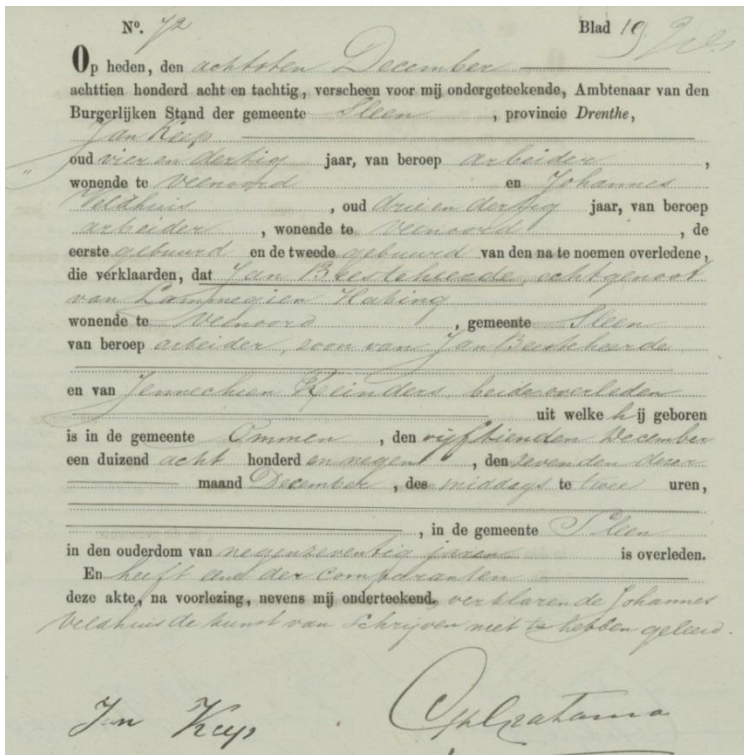 No. 72 Blad 19
Op heden, den achtsten December
achttien honderd acht en tachtig, verscheen voor mij ondergeteekende, Ambtenaar van den
Burgerlijken Stand der gemeente Sleen, provincie Drenthe,
Jan Keep
oud vier en dertig jaar, van beroep arbeider,
wonende te Veenoord en Johannes
Veldhuis, oud drie en dertig jaar, van beroep
arbeider, wonende te Veenoord, de
eerste gebuurd en de tweede gebuurd van den na te noemen overledene,
die verklaarden, dat Jan Beesteheerde, echtgenoot
van Lammegien Habing
wonende te Veenoord, gemeente Sleen
van beroep arbeider, zoon van Jan Beesteheerde
en van Jennechien Reinders beide overleden
uit welke hij geboren
is in de gemeente Ommen, den vijftienden December
een duizend acht honderd en negen, den zevenden dezer
maand December, des middags te twee uren,
, in de gemeente Sleen
in den ouderdom van negenzeventig jaren is overleden.
En heeft een der comparanten
deze akte, na voorlezing, nevens mij onderteekend. verklarende Johannes
Veldhuis de kunst van schrijven niet te hebben geleerd.
Jan Keep